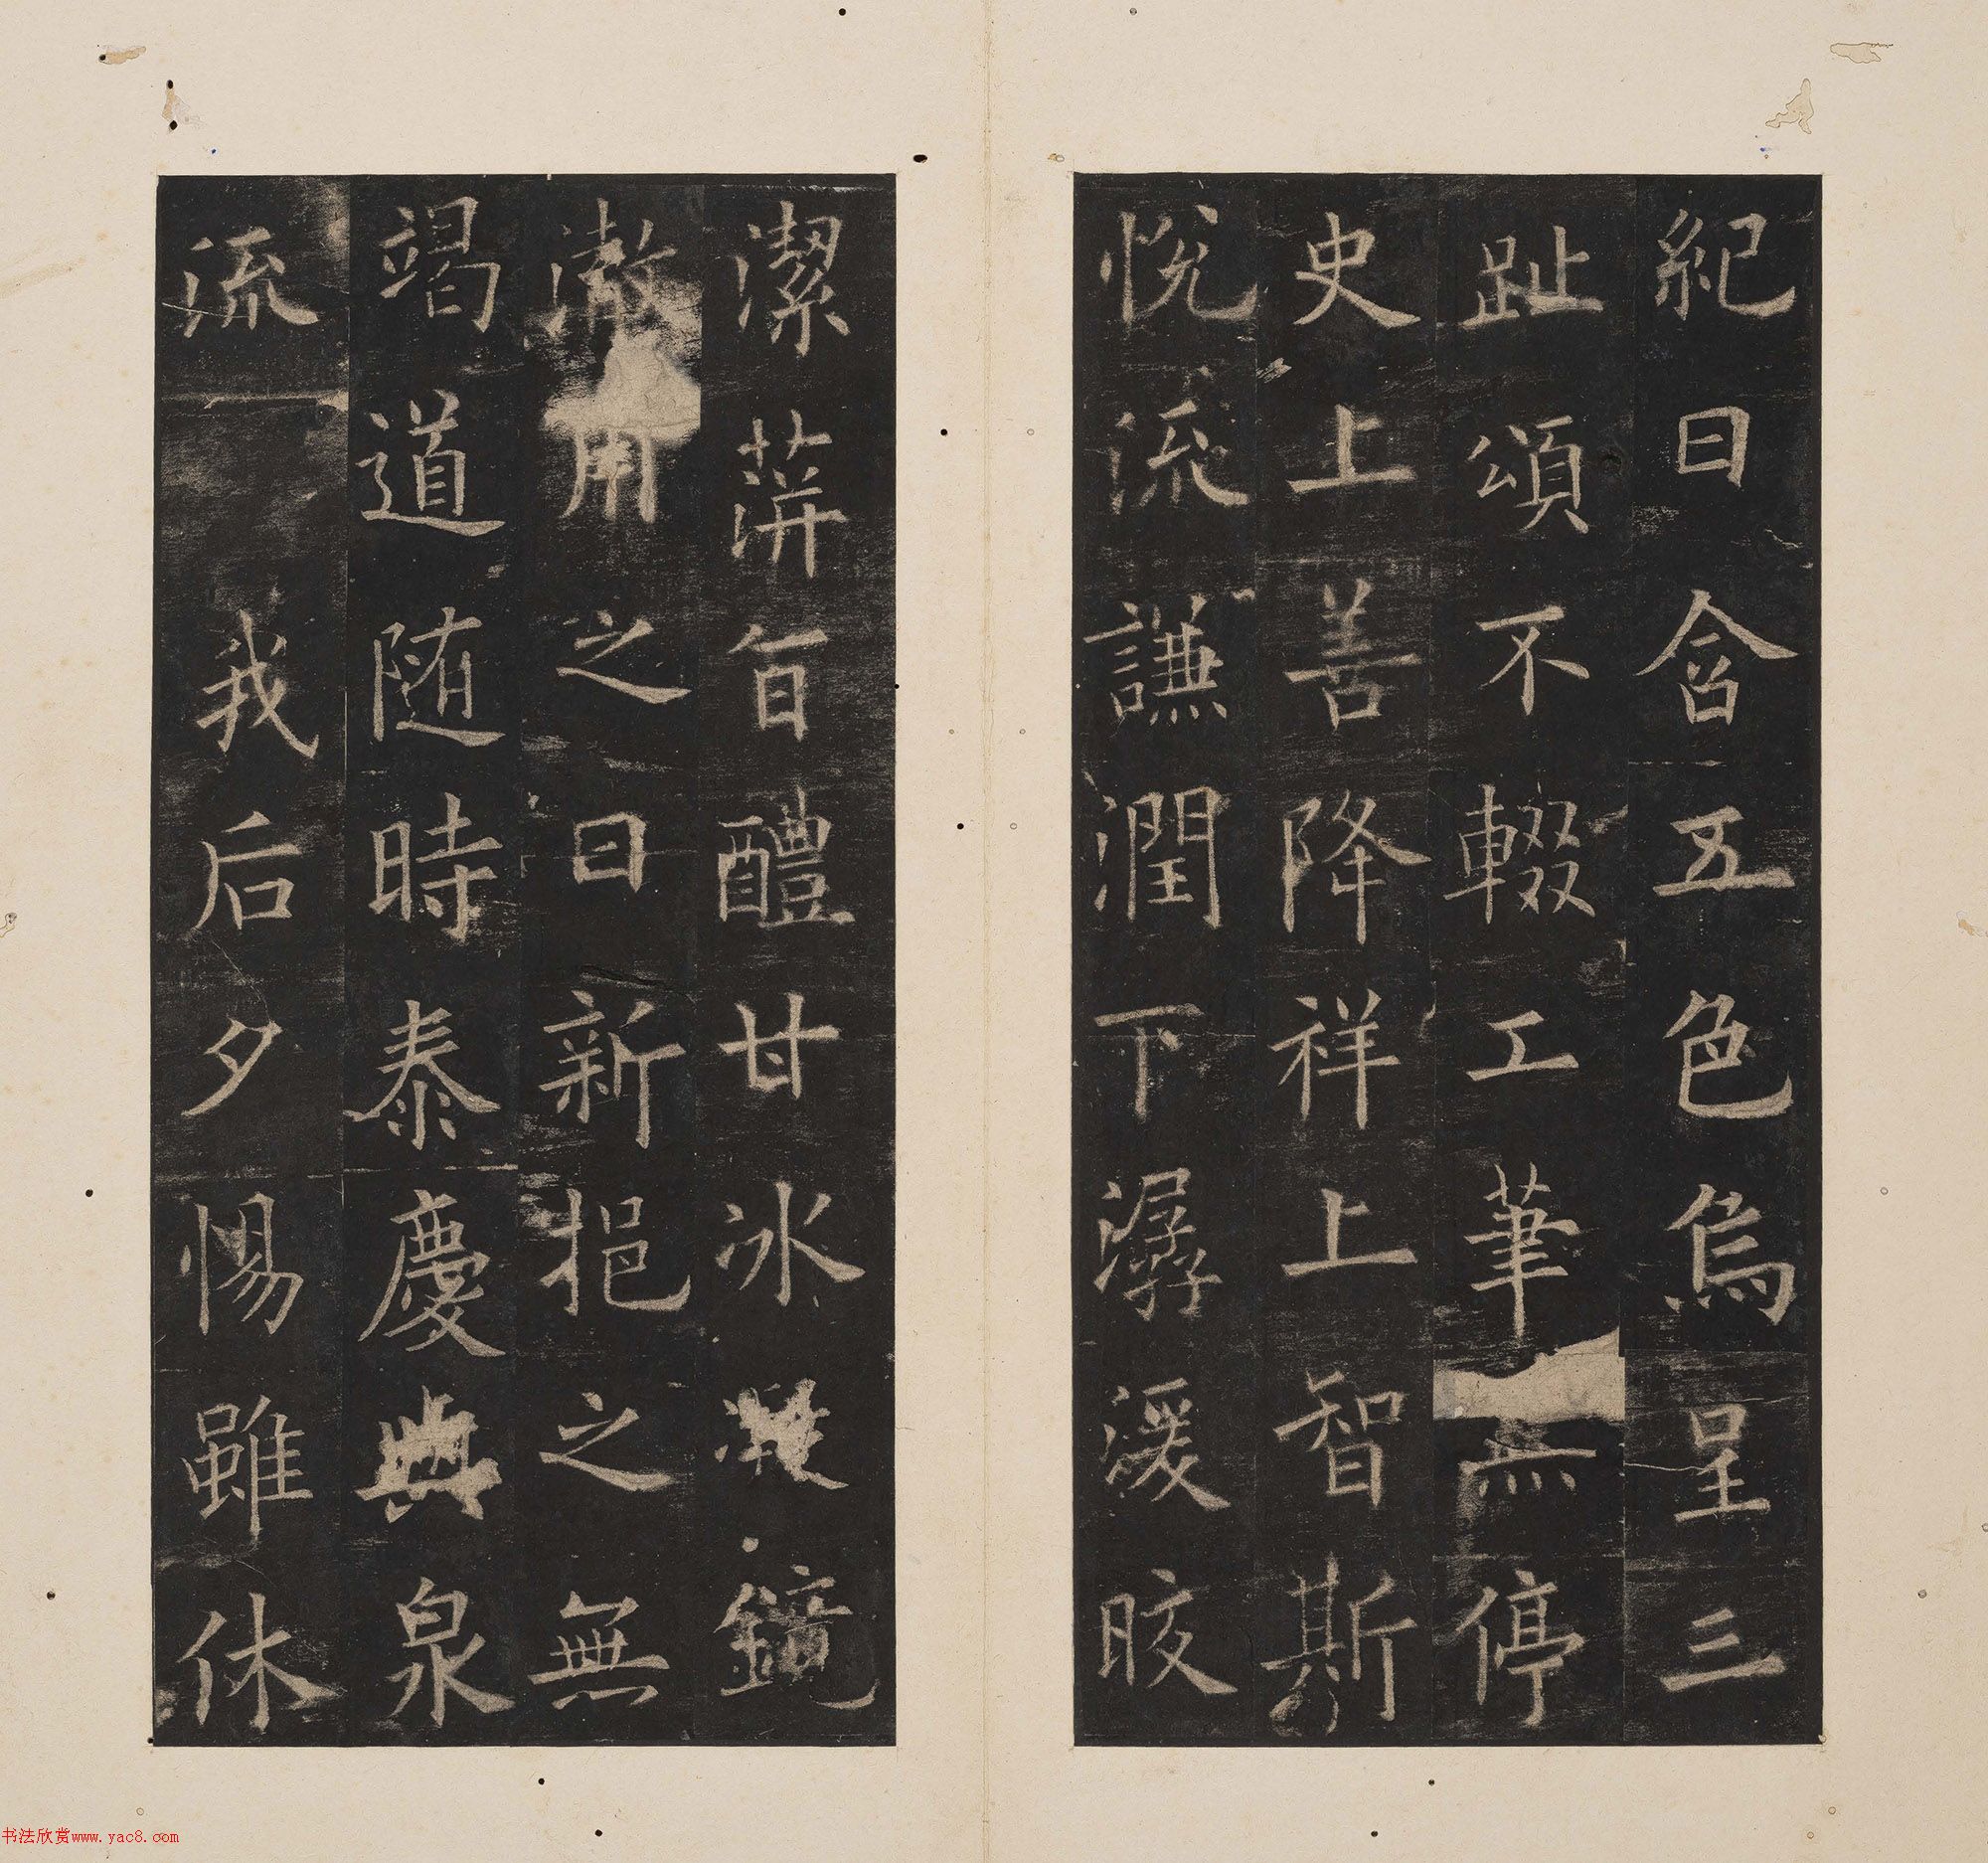 紀日含五色烏呈三
趾頌不輟工筆無停
史上善降祥上智斯
悅流謙潤下潺湲皎
潔蓱旨醴甘冰凝鏡
澈用之日新挹之無
竭道随時泰慶與泉
流我后夕惕雖休
书法欣赏www.yac8.com